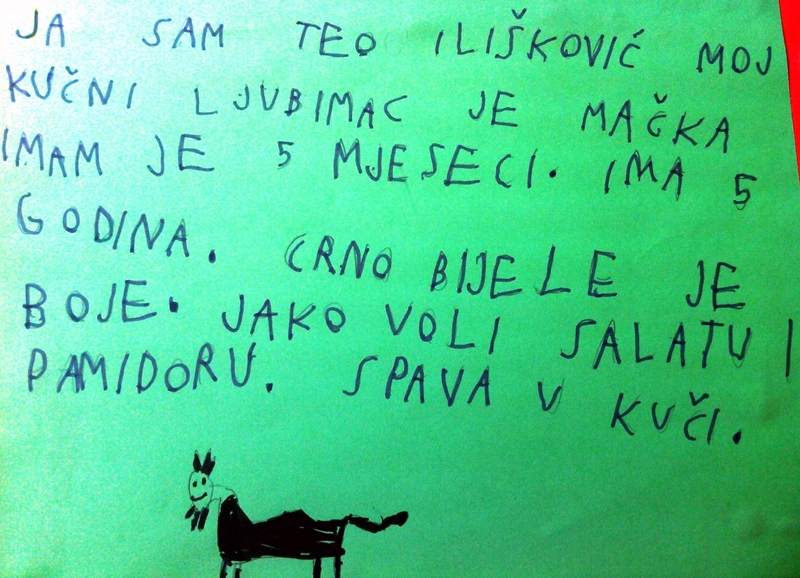 JA SAM TEO ILIŠKOVIĆ MOJ
KUČNI LJUBIMAC JE MAČKA
IMAM JE 5 MJESECI. IMA 5
GODINA. CRNO BIJELE JE
BOJE. JAKO VOLI SALATU I
PAMIDORU. SPAVA V KUČI.